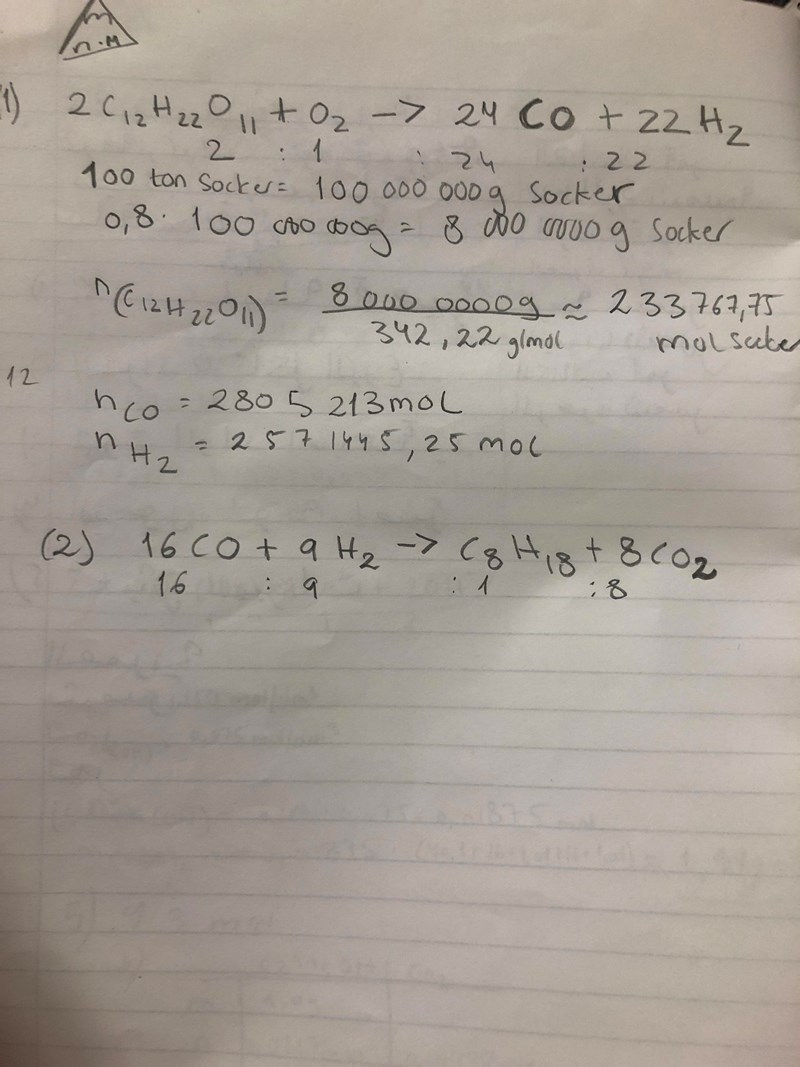 m
n·M
1) 2 C₁₂H₂₂O₁₁ + O₂ -> 24 CO + 22 H₂
2 : 1 : 24 : 22
100 ton socker = 100 000 000g socker
0,8 · 100 000 000g = 8 000 0000 g socker
n(C₁₂H₂₂O₁₁) = 8 000 0000g / 342,22 g/mol ≈ 233767,75 mol socker
12
nCO = 2805 213 mol
nH₂ = 2571445,25 mol
(2) 16 CO + 9 H₂ -> C₈H₁₈ + 8 CO₂
16 : 9 : 1 : 8